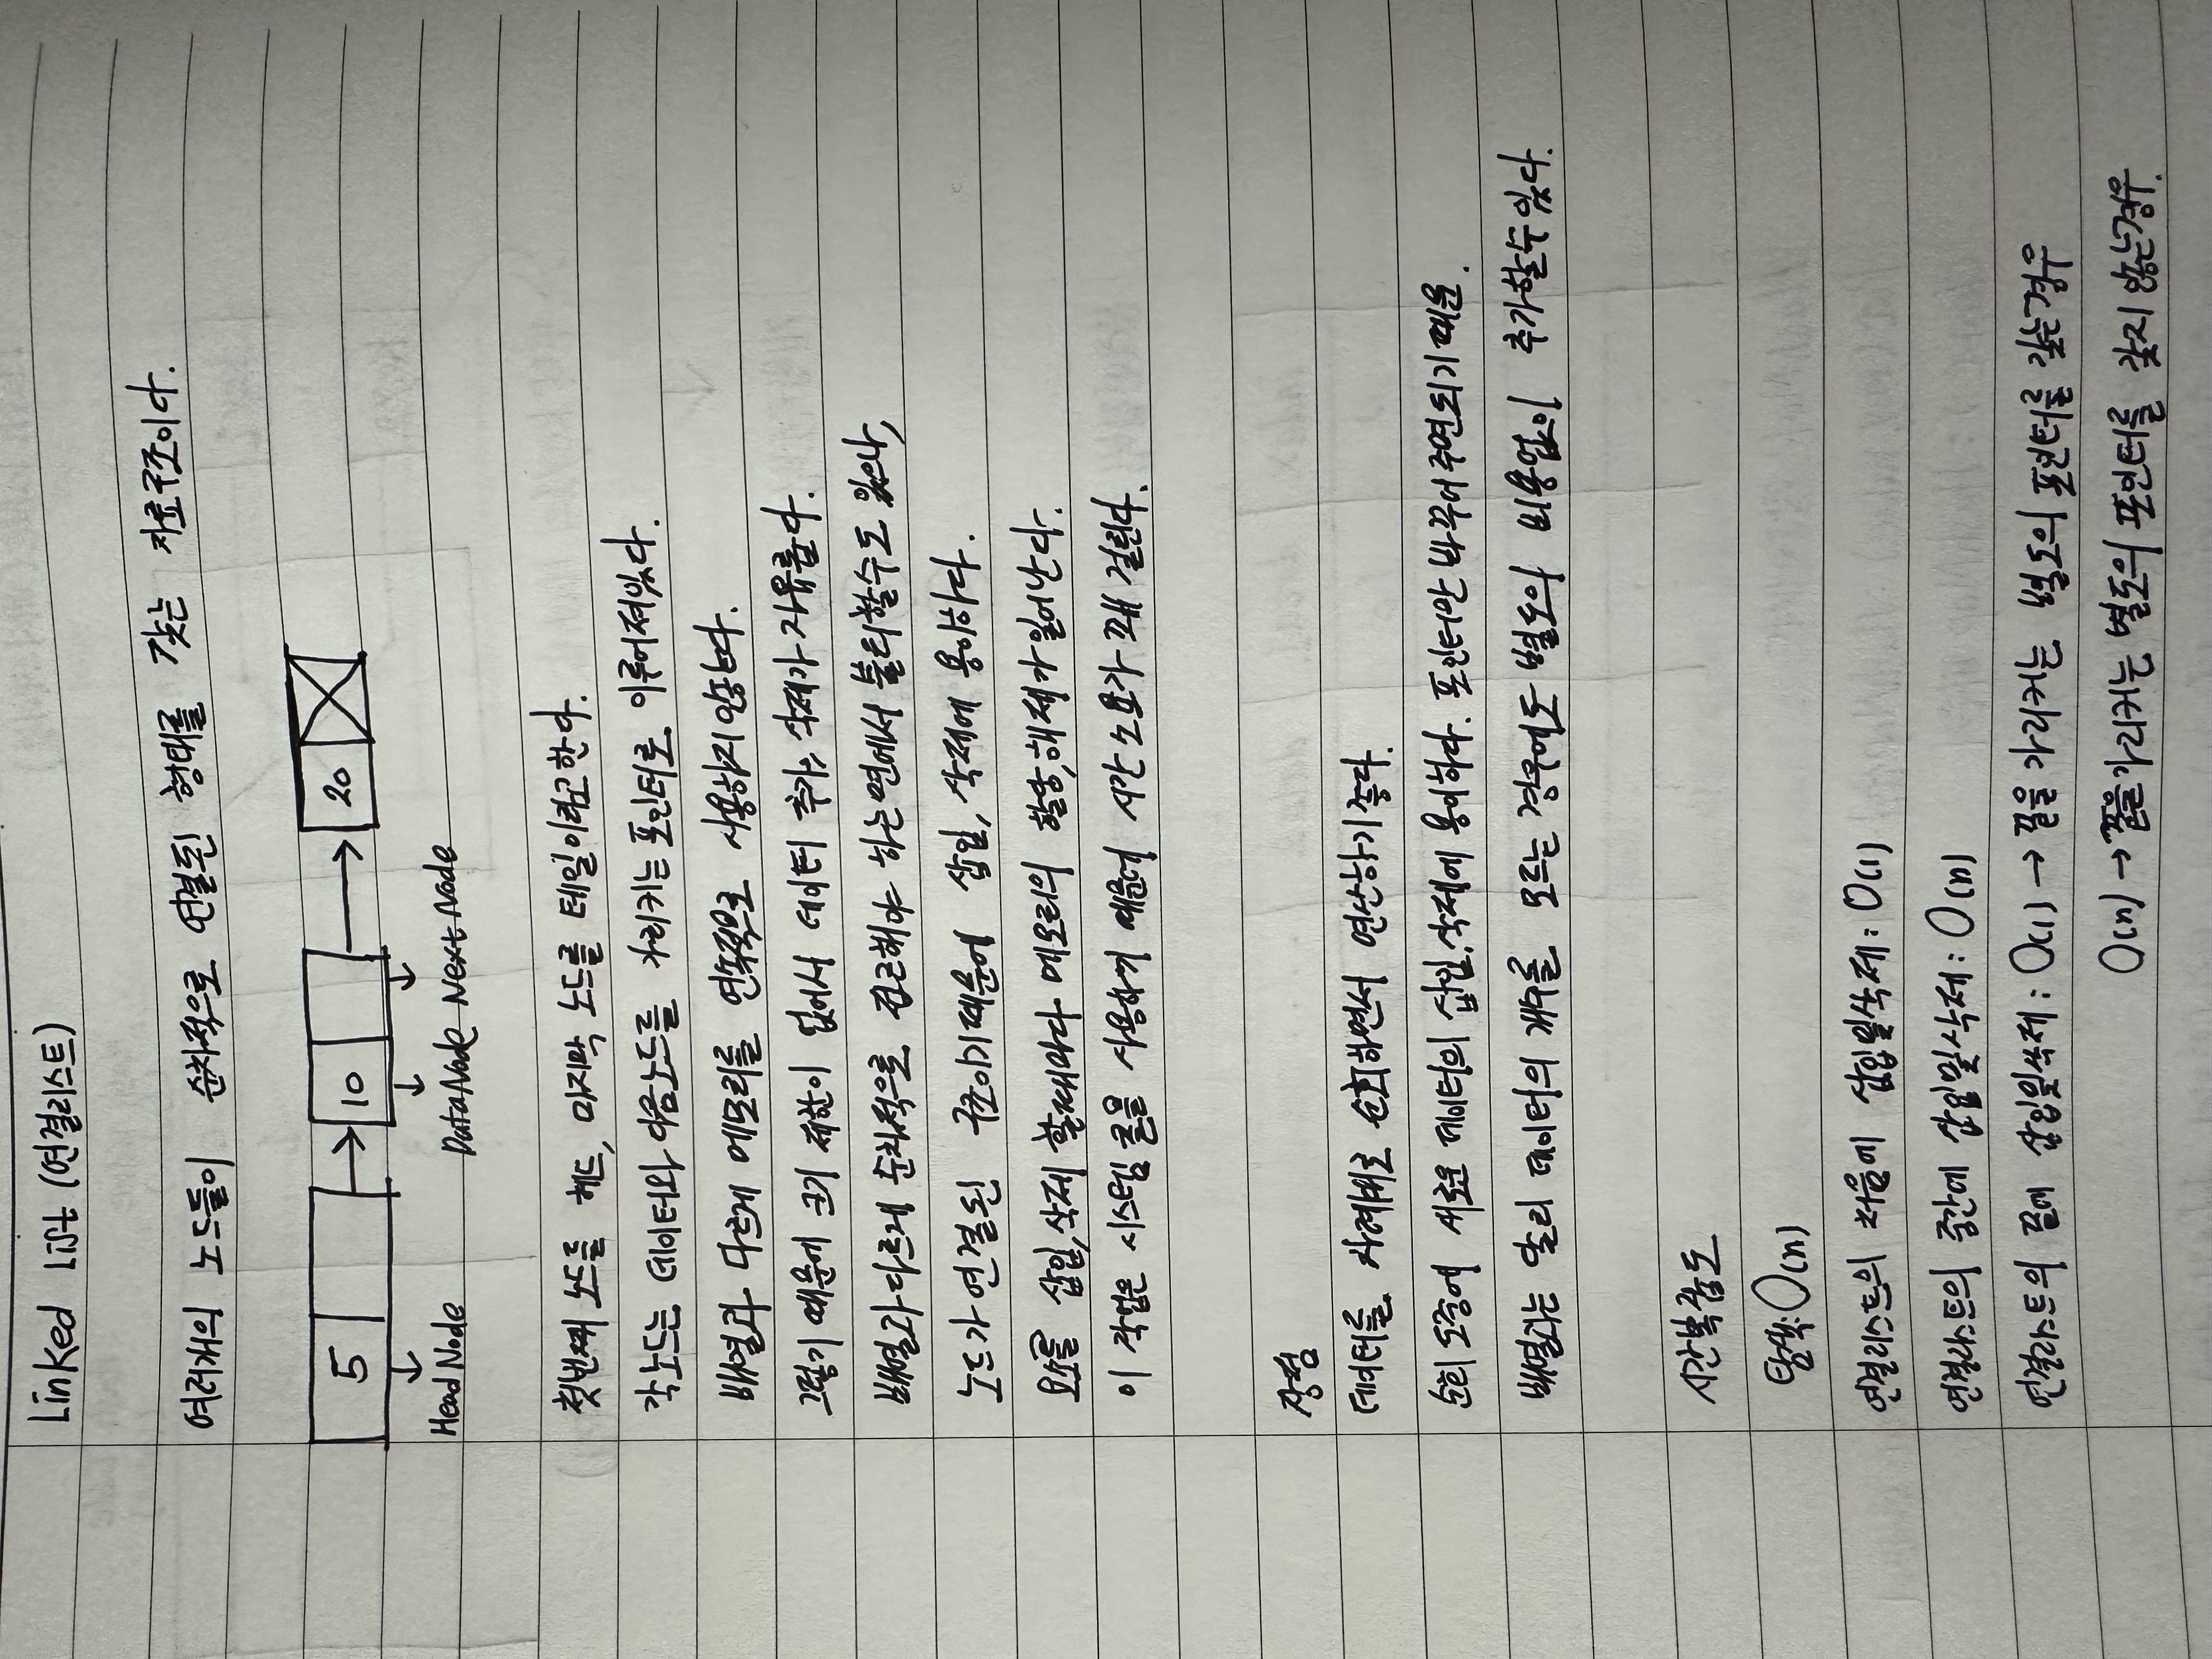 Linked List (연결리스트)
여러개의 노드들이 순차적으로 연결된 형태를 갖는 자료구조이다.
5 10 20
Head Node Data Node Next Node
첫번째 노드를 헤드, 마지막 노드를 테일이라고한다.
각노드는 데이터와 다음노드를 가리키는 포인터로 이루어져있다.
배열과 다르게 메모리를 연속적으로 사용하지 않는다.
그렇기 때문에 크기 제한이 없어서 데이터 추가, 삭제가 자유롭다.
배열과다르게 순차적으로 접근해야 하는면에서 불리할수도 있으나,
노드가 연결된 구조이기때문에 삽입, 삭제에 용이하다.
요소를 삽입,삭제 할때마다 메모리의 할당,해제가 일어난다.
이 작업은 시스템 콜을 사용하기 때문에 시간 소요가 꽤 걸린다.
장점
데이터를 차례대로 순회하면서 연산하기좋다.
순회 도중에 새로운 데이터의 삽입,삭제에 용이하다. 포인터만 바꾸어주면되기때문.
배열과는 달리 데이터의 개수를 모르는 경우에도 별도의 비용없이 추가할수있다.
시간복잡도
탐색: O(n)
연결리스트의 처음에 삽입및삭제: O(1)
연결리스트의 중간에 삽입및삭제: O(n)
연결리스트의 끝에 삽입및삭제: O(1) → 끝을 가리키는 별도의 포인터를 갖는경우
O(n) → 끝을가리키는 별도의 포인터를 갖지 않는경우.